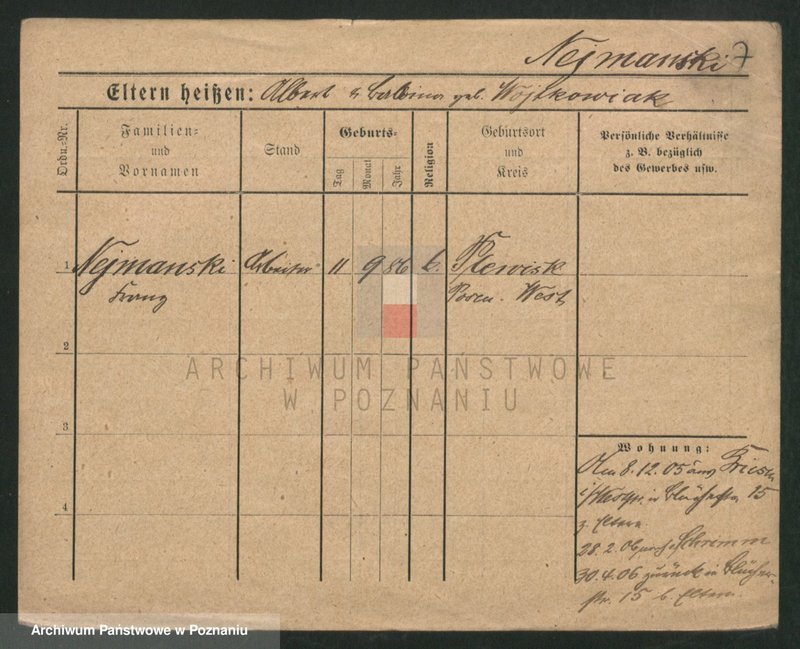 Nejmanski 7
Eltern heißen: Albert u Balbina geb. Wojtkowiak
Ordn.-Nr.
Familien-
und
Vornamen
Stand
Geburts-
Tag
Monat
Jahr
Religion
Geburtsort
und
Kreis
Persönliche Verhältnisse
z. B. bezüglich
des Gewerbes usw.
1 Nejmanski Arbeiter 11 9 86 k. Plewisk
Franz Posen. West
2
3
4
ARCHIWUM PAŃSTWOWE
W POZNANIU
Wohnung:
8.12.05 aus Kriesen
in 15
z. Eltern
28.2.06 nach Schremm
30.4.06 zurück in Blücher-
str. 15 b. Eltern.
Archiwum Państwowe w Poznaniu